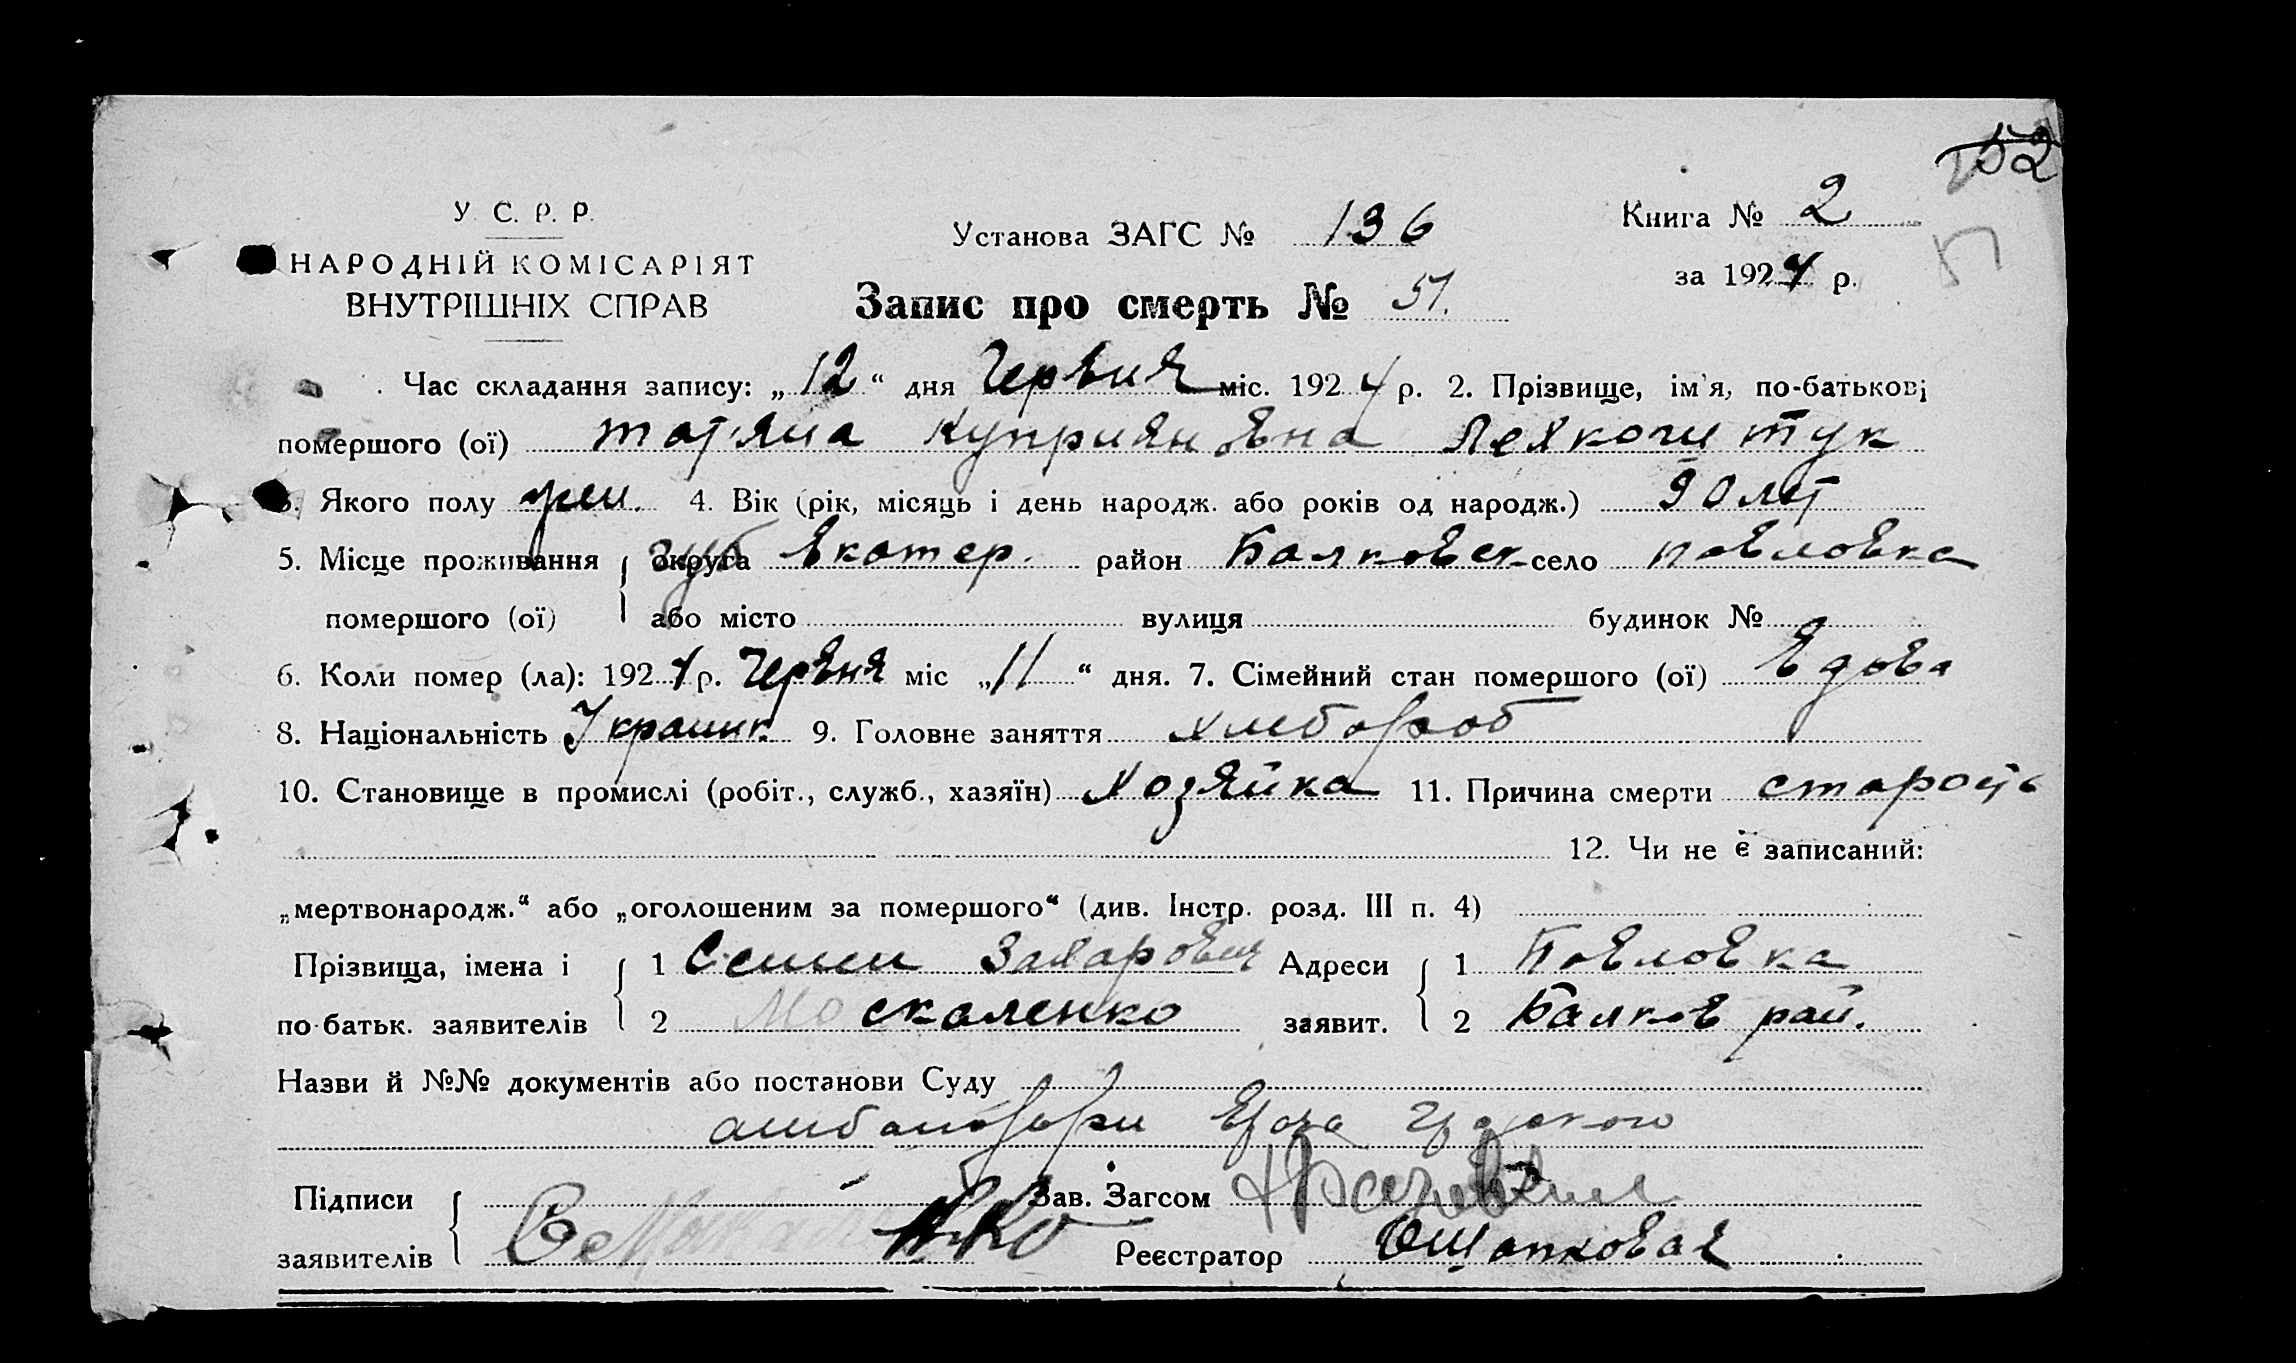 52
У. С. Р. Р.
НАРОДНІЙ КОМІСАРІЯТ
ВНУТРІШНІХ СПРАВ
Установа ЗАГС № 136
Книга № 2
за 1924 р.
Запис про смерть № 51.
Час складання запису: „12“ дня Червня міс. 1924 р. 2. Прізвище, ім'я, по-батькові
помершого (ої) Татяна Куприяновна
3. Якого полу жен. 4. Вік (рік, місяць і день народж. або років од народж.) 90 лет
5. Місце проживання округа губ Екатер. район Балковск село Павловка
помершого (ої) або місто вулиця будинок №
6. Коли помер (ла): 1924 р. Червня міс „11“ дня. 7. Сімейний стан помершого (ої) Вдова
8. Національність Украинк. 9. Головне заняття хлебороб
10. Становище в промислі (робіт., служб., хазяїн) Хозяйка 11. Причина смерти старость
12. Чи не є записаний:
„мертвонародж.“ або „оголошеним за помершого“ (див. Інстр. розд. III п. 4)
Прізвища, імена і 1 Семен Захарович Адреси 1 Павловка
по-батьк. заявителів 2 Москаленко заявит. 2 Балков рай.
Назви й №№ документів або постанови Суду
Підписи Зав. Загсом
заявителів Реєстратор